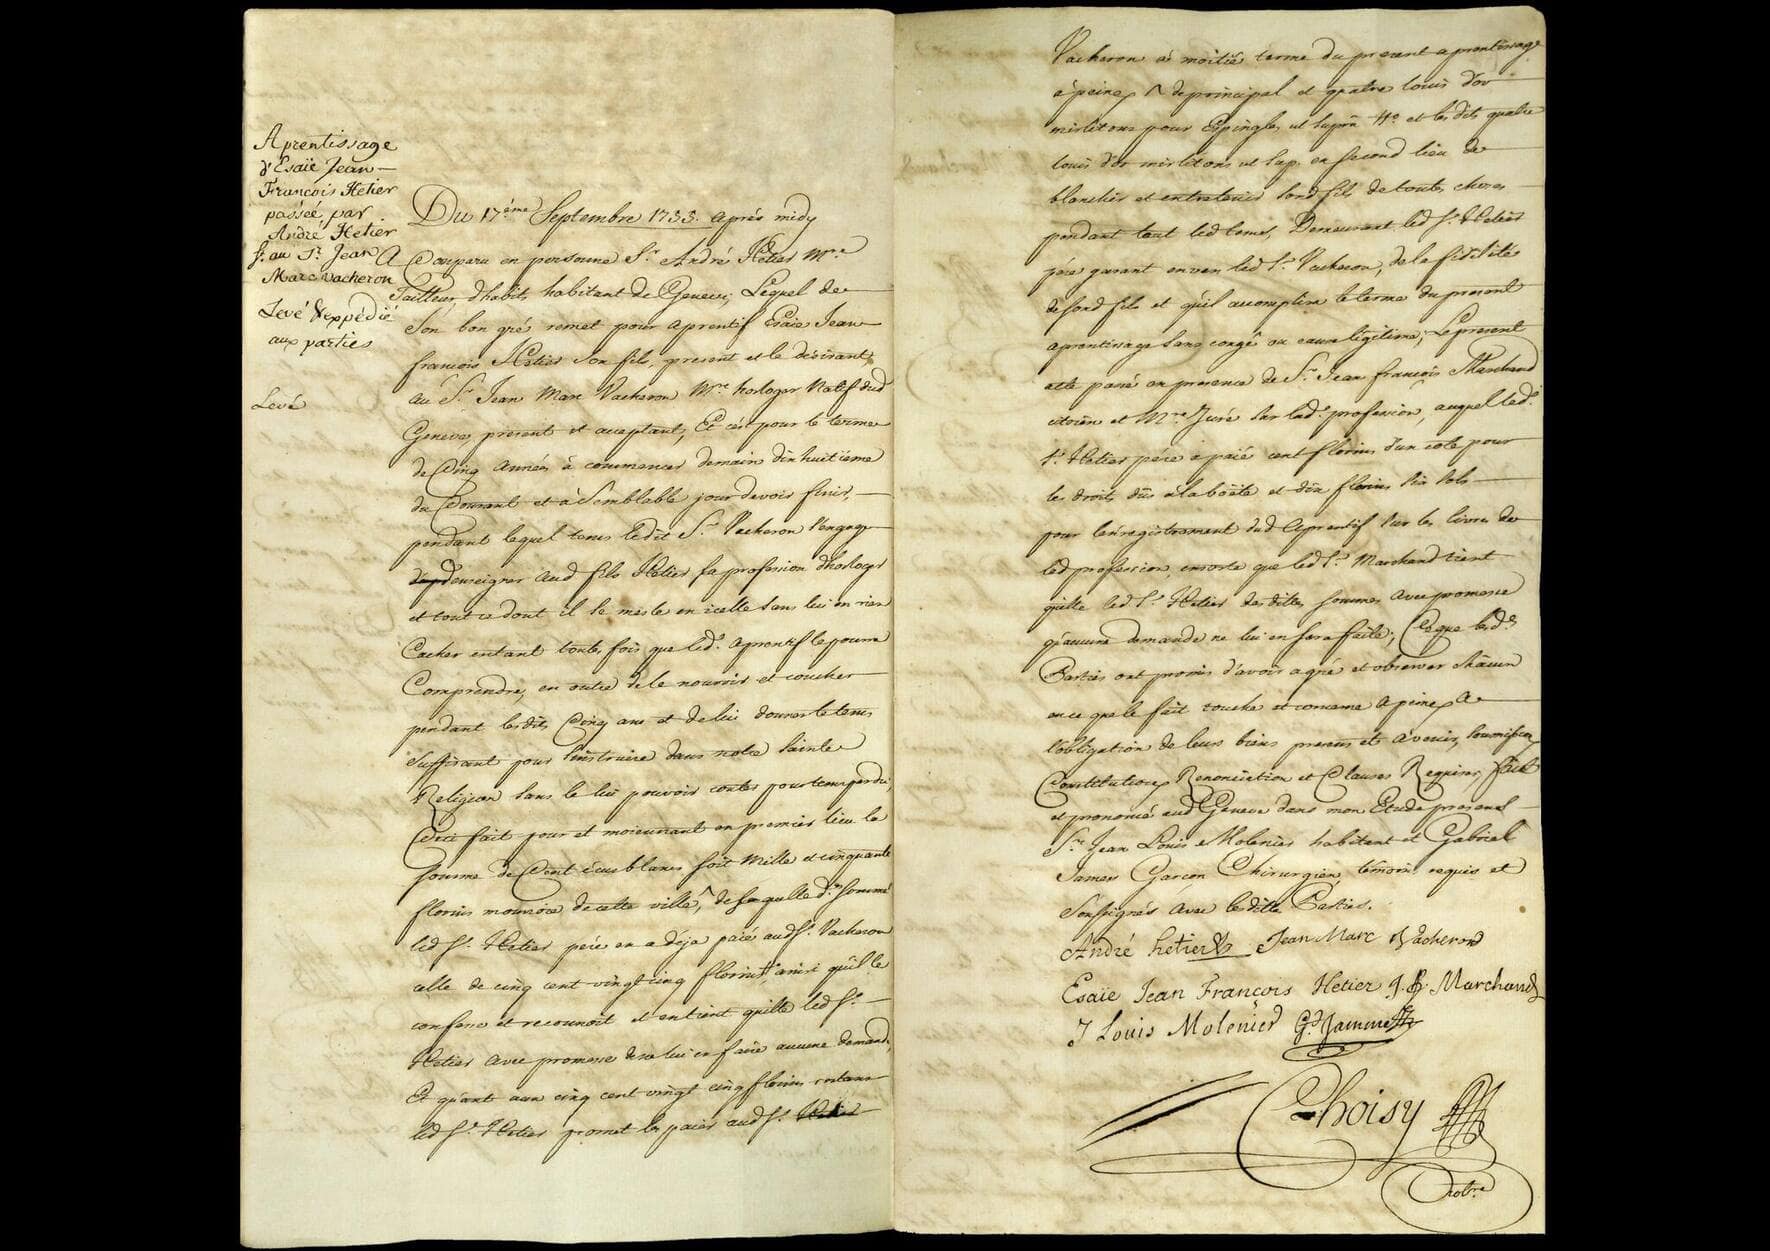 Aprentissage
d'Esaïe Jean
François Hetier
passéé, par
André Hetier
au Sr. Jean
Marc Vacheron
Levé & expédié
aux parties
Levé
Du 17éme Septembre 1755. aprés midy
A Comparu en personne Sr. André Hetier Mre.
Tailleur d'habits habitant de Geneve, Lequel de
Son bon gré remet pour aprentif Esaïe Jean
françois Hetier Son fils, present et le désirant,
au Sr. Jean Marc Vacheron Mre. horloger Natif dud.
Geneve, present et acceptant, Et c'est pour le terme
de Cinq Années à commencer demain dixhuitiéme
du Courant et à Semblable jour devoir finir,
pendant lequel tems ledit Sr. Vacheron s'engage
d'enseigner aud. fils Hetier sa profession d'horloger
et tout ce dont il se mesle en icelle sans lui en rien
Cacher entant toutes fois que led. aprentif le pourra
Comprendre, en outre de le nourrir et coucher
pendant lesdits Cinq ans et de lui donner le tems
Suffisant pour s'instruire dans notre Sainte
Religion sans le lui pouvoir conter pour tems perdu,
Ceci fait pour et moiennant en premier lieu la
Somme de Cent écus blancs soit Mille et cinquante
florins monnoie de cette ville, de laquelle de. somme
led. Sr. Hetier pére en a déja paié aud. Sr. Vacheron
celle de cinq cent vingt cinq florins ainsi qu'il le
confesse et reconnoit et en tient quitte led. Sr.
Hetier avec promesse de ne lui en faire aucune demande,
Et quant aux cinq cent vingt cinq florins restans
led. Sr. Hetier promet les paier aud. Sr.
Vacheron à moitié terme du present aprentissage
à peine de principal et quatre louis d'or
mirlitons pour Epingles ut supra et lesdits quatre
louis d'or mirlitons ut sup. en second lieu de
blanchir et entretenir sond. fils de toutes choses
pendant tout led. tems, Demeurant led. Sr. Hetier
pére garant envers led. Sr. Vacheron, de la fidélité
de sond. fils et qu'il accomplira le terme du present
aprentissage sans congé ou cause légitime; Le present
acte passé en presence de Sr. Jean françois Marchand
citoien et Mre. Juré sur lad. profession, auquel led.
Sr. Hetier pére a paié cent florins d'un coté pour
les droits dûs à la boëte et dix florins six sols
pour l'enregistrement dud. Aprentif sur les livres de
lad. profession, ensorte que led. Sr. Marchand tient
quitte led. Sr. Hetier desdittes sommes avec promesse
qu'aucune demande ne lui en sera faite; Ce que lesd.
Parties ont promis d'avoir agré et observer chacun
en ce que le fait touche et concerne à peine &c
l'obligation de leurs biens presens et à venir, soumissions
Constitutions Renonciation et Clauses Requises, fait
et prononcé aud. Geneve dans mon Etude presens
Sr. Jean Louis Molenier habitant et Gabriel
James Garçon Chirurgien, témoins requis et
Soussignés avec lesdittes Parties.
André hetier Jean Marc Vacheron
Esaïe Jean François Hetier J. F. Marchand
J Louis Molenier Gl. Jammes
Choisy
Notre.